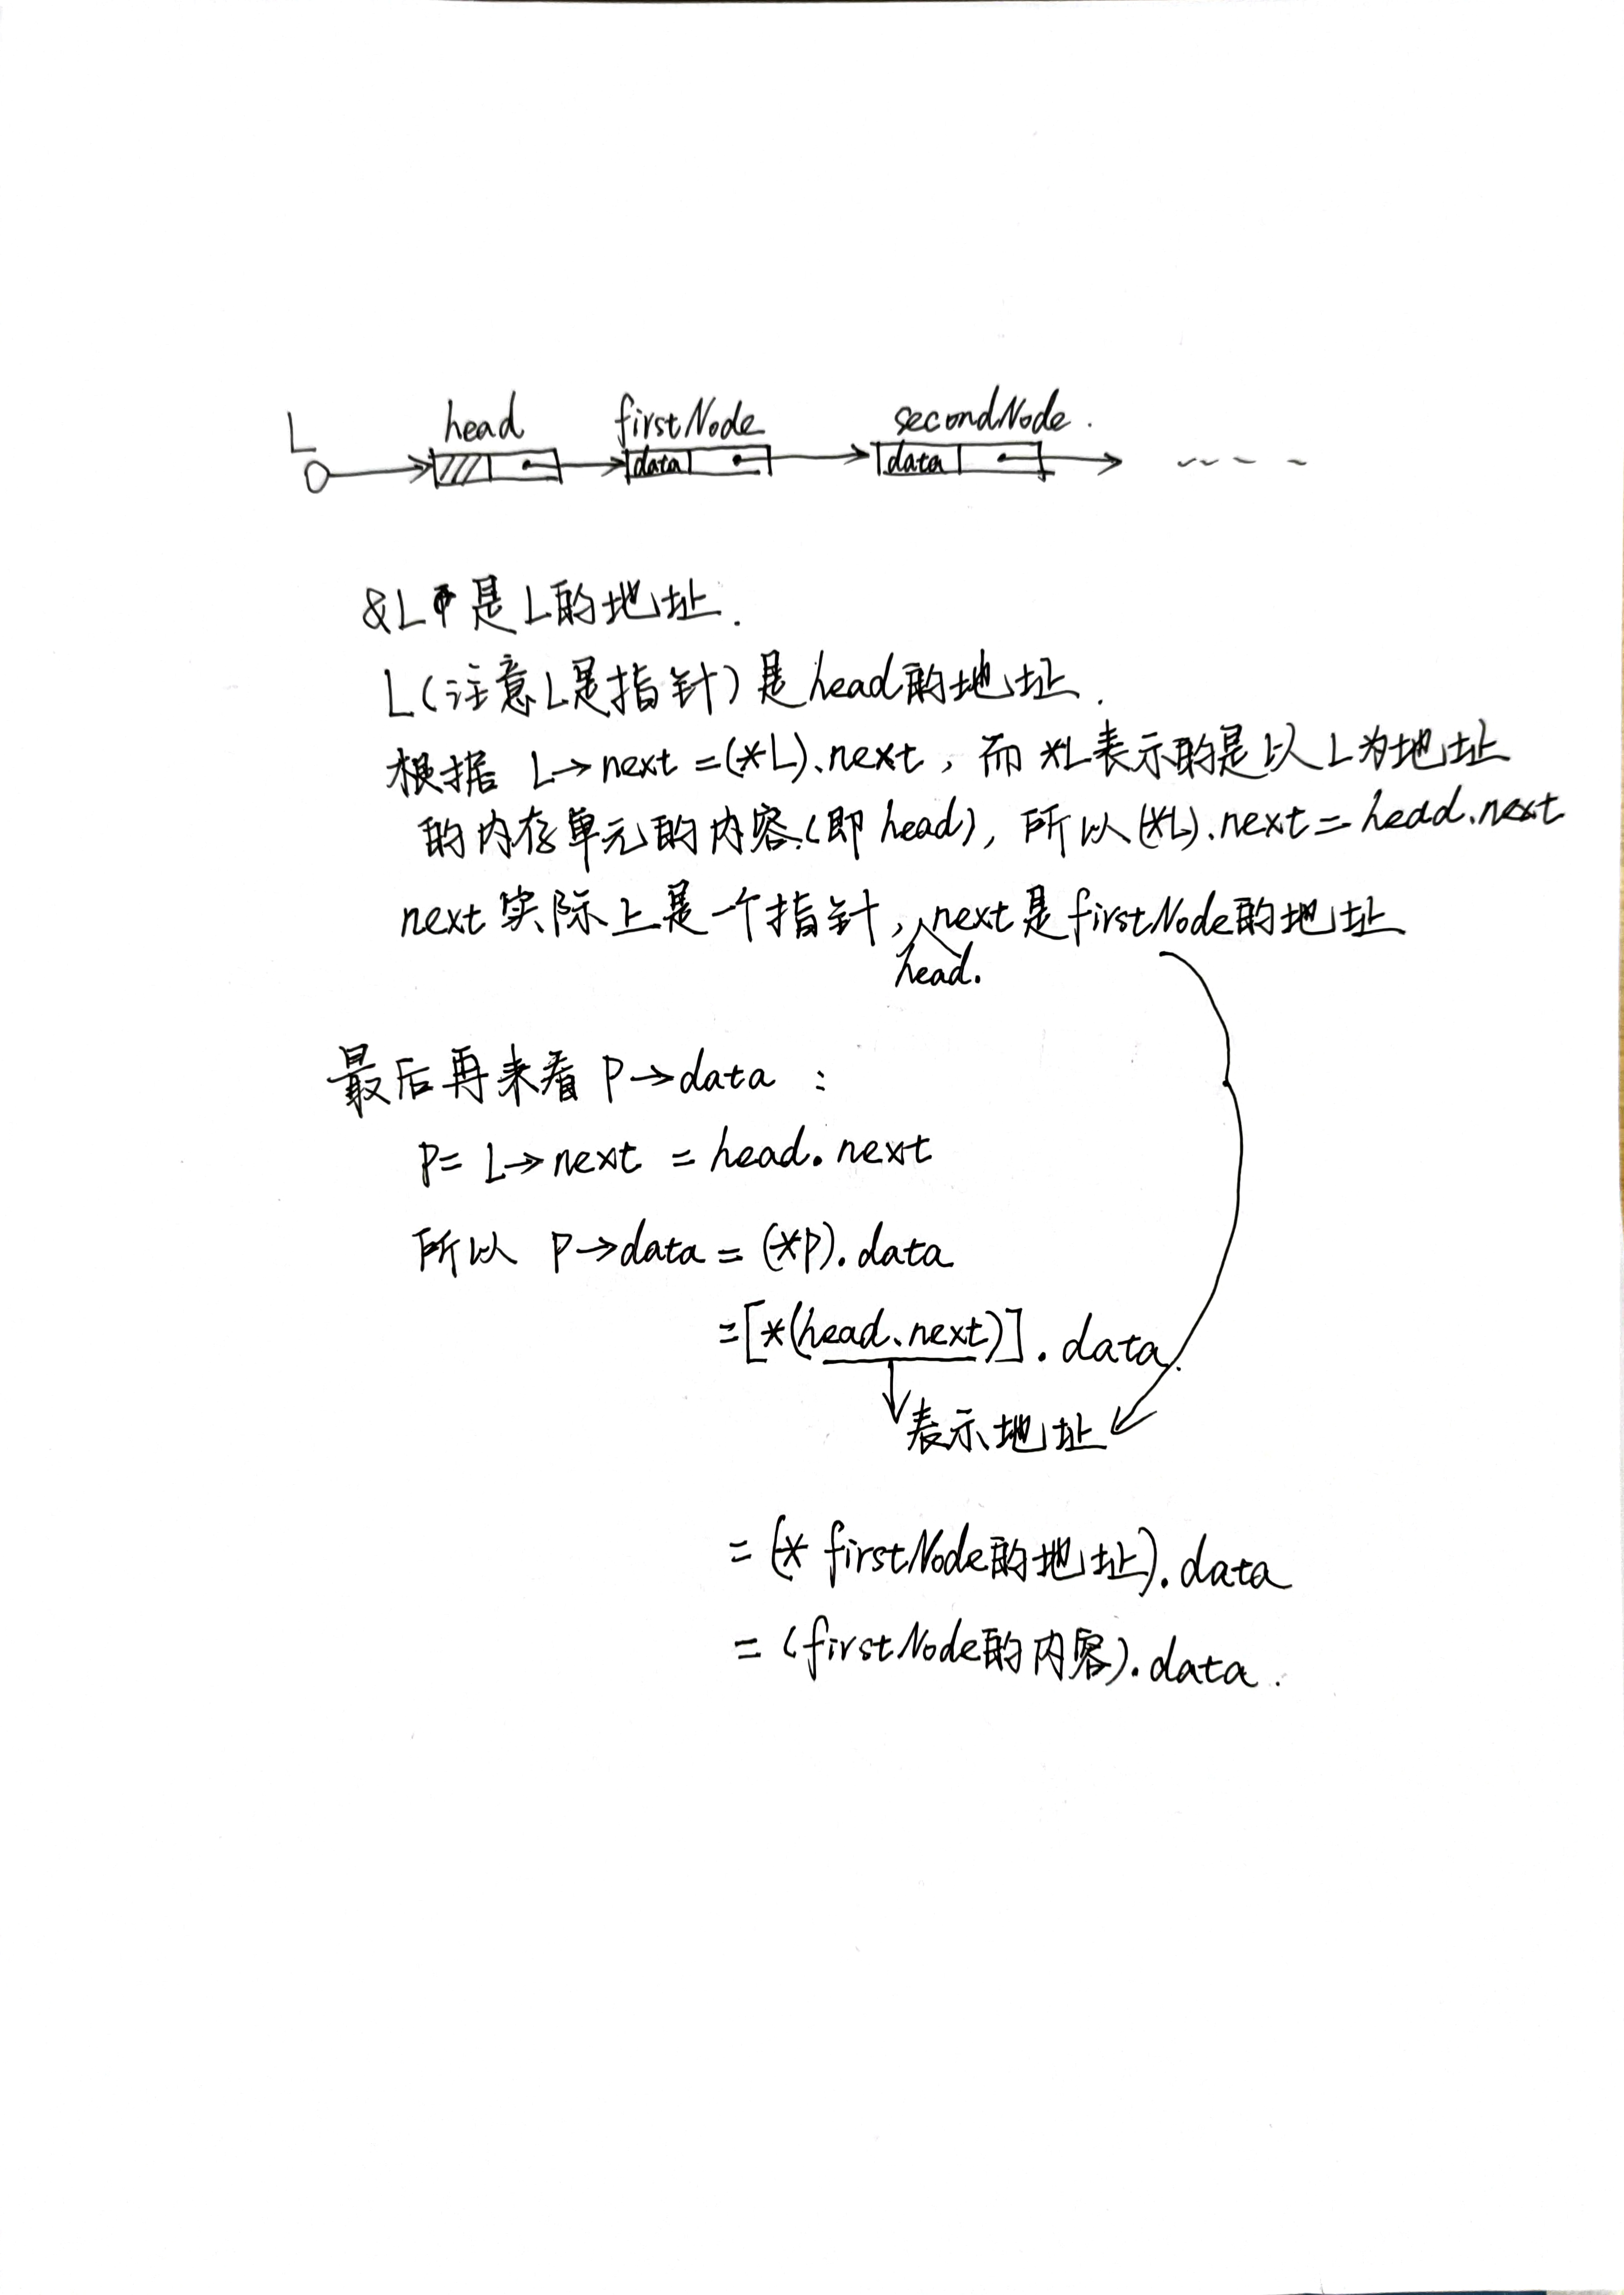 L head firstNode secondNode.
data data
&L是L的地址.
L(注意L是指针)是head的地址.
根据 L→next=(*L).next, 而*L表示的是以L为地址
的内存单元的内容(即head), 所以(*L).next=head.next
next实际上是一个指针, head.next是firstNode的地址
最后再来看 P→data :
P= L→next = head.next
所以 P→data = (*P).data
=[*(head.next)].data.
表示地址
= (* firstNode的地址).data
= (firstNode的内容).data.